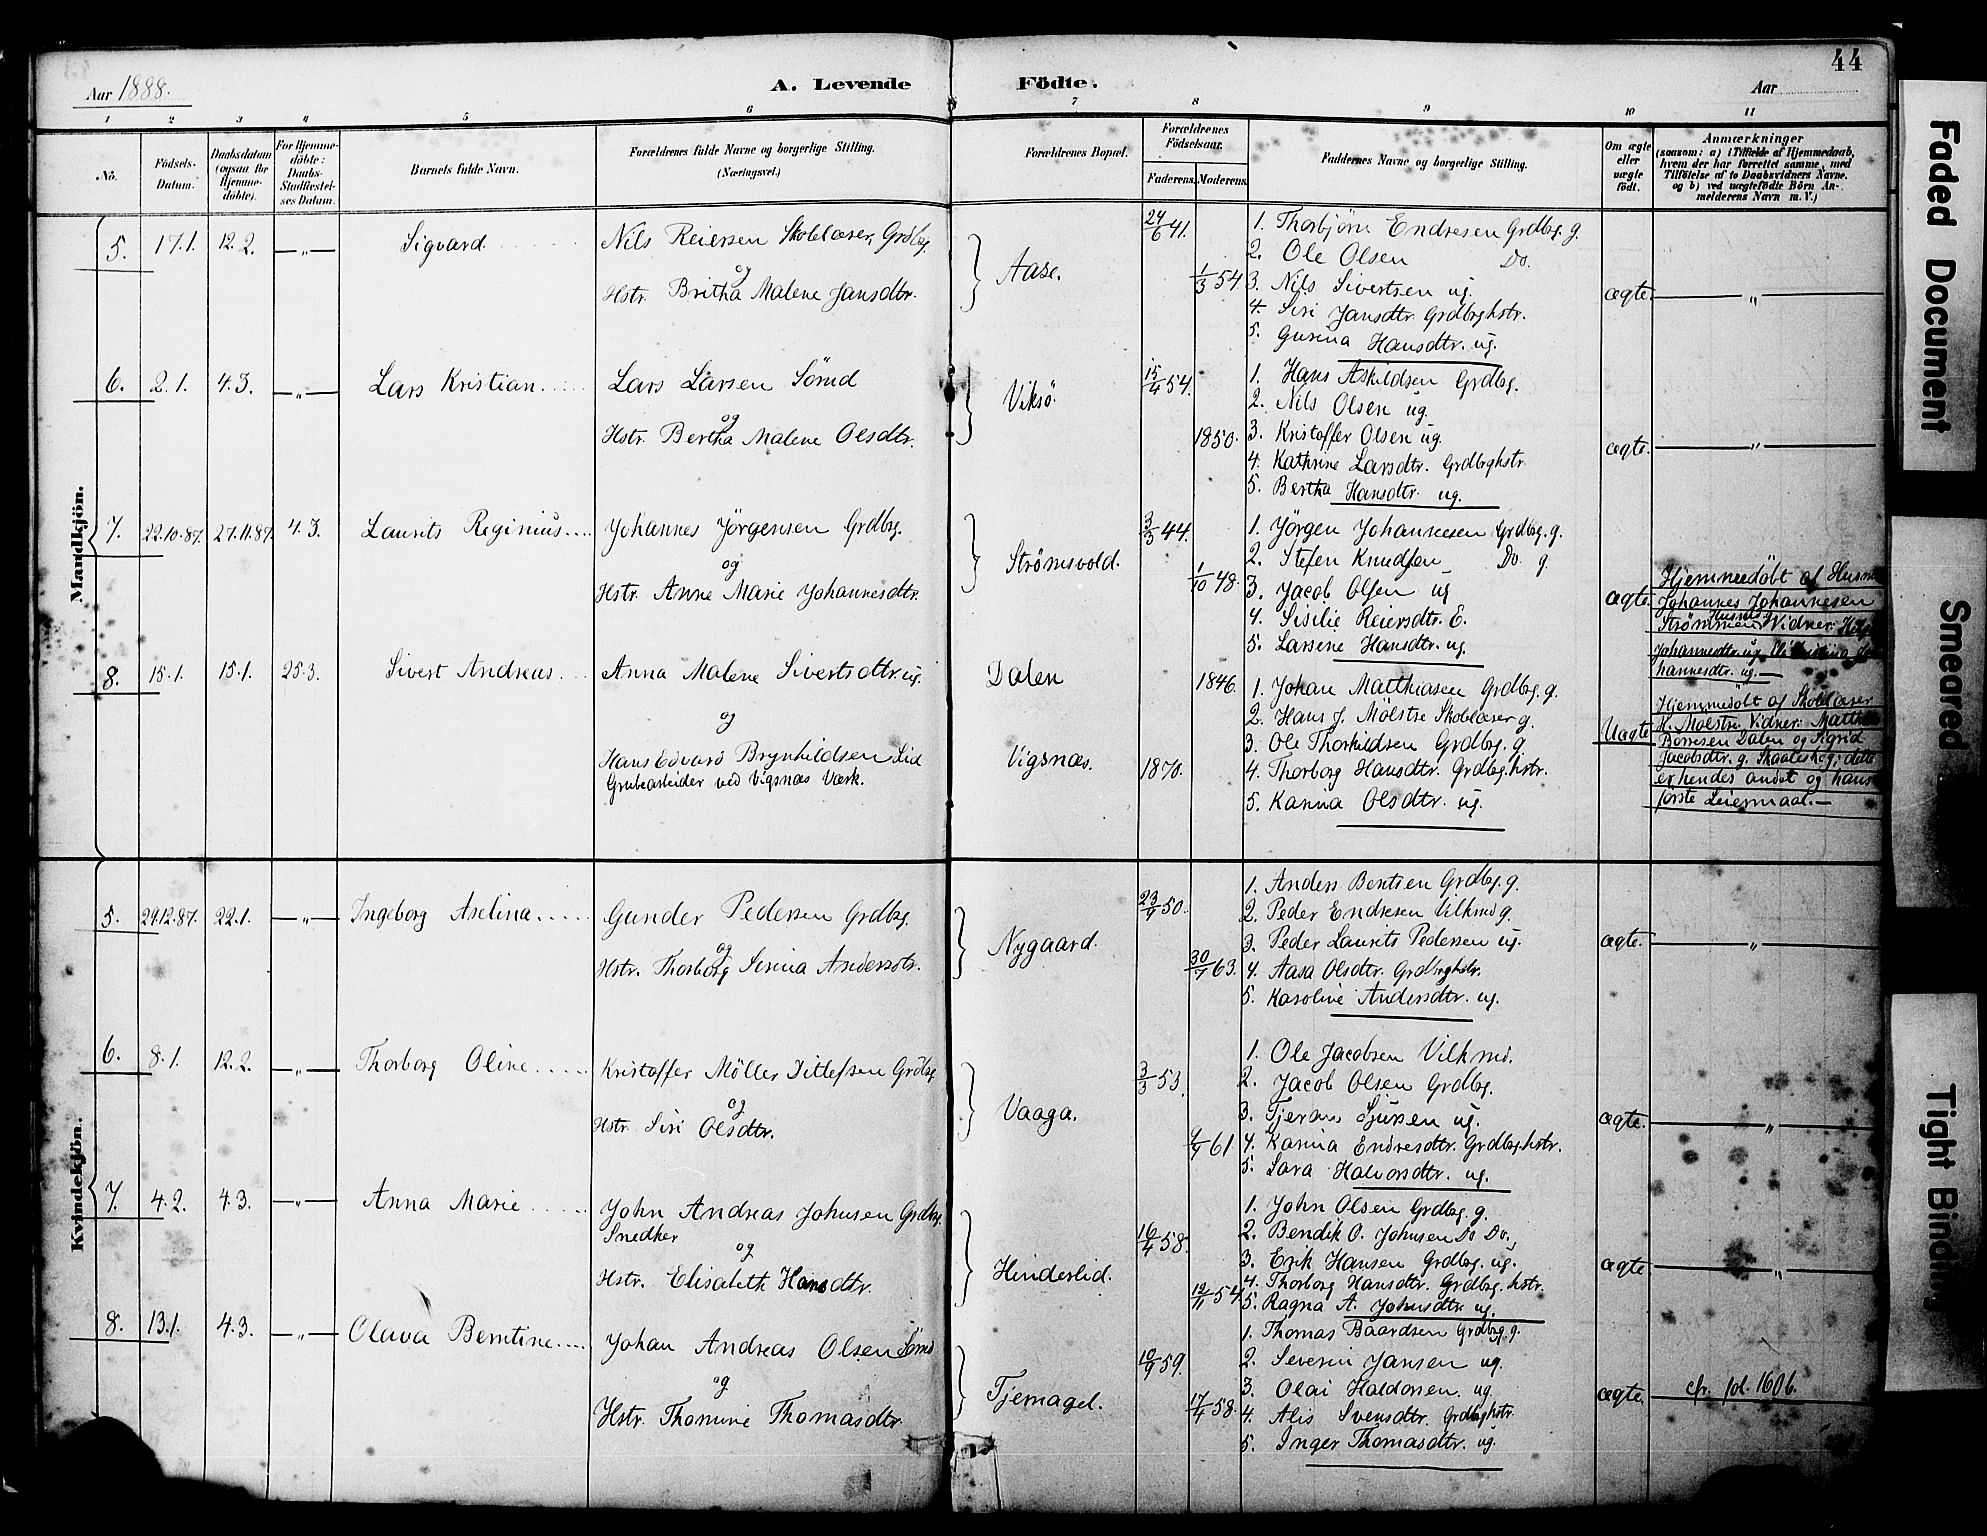 44
Aar 1888.
A. Levende Födte.
Aar
1 2 3 4 5 6 7 8 9 10 11
No.
Födsels-Datum.
Daabsdatum (ogsaa for Hjemme-döbte).
For Hjemme-döbte: Daabs-Stadfæstel-ses Datum.
Barnets fulde Navn.
Forældrenes fulde Navne og borgerlige Stilling. (Næringsvei.)
Forældrenes Bopæl.
Forældrenes Födselsaar.
Faderens. Moderens.
Faddernes Navne og borgerlige Stilling.
Om ægte eller uægte födt.
Anmærkninger
(saasom: a) i Tilfælde af Hjemmedaab, hvem der har forrettet samme, med Tilföielse af to Daabsvidners Navne, og b) ved uægtefödte Börn An-melderens Navn m. V.)
Mandkjön.
5. 17.1. 12.2. —„— Sigvard
Nils Reiersen Skolelærer, Grdbrg.
og
Hstr. Britha Malene Jansdtr.
Aase.
24/6 41.
1/3 54
1. Thorbjörn Endresen Grdbrg. g.
2. Ole Olsen Do.
3. Nils Sivertsen ug.
4. Siri Jansdtr. Grdbrghstr.
5. Gurina Hansdtr. ug.
ægte. „
6. 2.1. 4.3. —„— Lars Kristian
Lars Larsen Sömd
og
Hstr. Bertha Malene Olsdtr.
Viksö.
15/4 54.
1850.
1. Hans Askildsen Grdbrg.
2. Nils Olsen ug.
3. Kristoffer Olsen ug.
4. Kathrine Larsdtr. Grdbrghstr.
5. Bertha Hansdtr. ug.
ægte. „
7. 22.10.87. 27.11.87. 4.3. Laurits Reginius
Johannes Jörgensen Grdbrg.
og
Hstr. Anne Marie Johannesdtr.
Strömsvold.
3/3 44.
1/10 48.
1. Jörgen Johannesen Grdbrg. g.
2. Stefen Knudsen Do g.
3. Jacob Olsen ug
4. Sisilie Reiersdtr. E.
5. Larsine Hansdtr. ug.
ægte.
Hjemmedöbt af Husm
Johannes Johannesen
Strömmen Vidner:
Johannesdtr. ug.
hannesdtr. ug.
8. 15.1. 15.1. 25.3. Sivert Andreas
Anna Malene Sivertsdtr. ug.
og
Hans Edvard Brynhildsen Lid
Grubearbeider ved Vigsnæs Værk.
Dalen
Vigsnæs.
1846.
1870.
1. Johan Matthiasen Grdbrg. g.
2. Hans J. Mölstre Skolelærer g.
3. Ole Thorkildsen Grdbrg. g.
4. Thorborg Hansdtr. Grdbrg. hstr.
5. Karina Olsdtr. ug.
Uægte
Hjemmedöbt af Skolelærer
H. Molstre. Vidner:
Börresen Dalen og Sigrid
Jacobsdtr. g. ; dette
er hendes andet og hans
förste Leiermaal.
Kvindekjön.
5. 29.12.87. 22.1. —„— Ingeborg Aselina
Gunder Pedersen Grdbrg.
og
Hstr. Thorborg Serina Andersdtr.
Nygaard.
23/9 50.
30/7 63.
1. Anders Bentsen Grdbrg. g.
2. Peder Endresen g.
3. Peder Laurits Pedersen ug.
4. Aasa Olsdtr. Grdbrghstr.
5. Karoline Andersdtr. ug.
ægte. „
6. 8.1. 12.2. —„— Thorborg Oline
Kristoffer Möller Ditlefsen Grdbrg
og
Hstr. Siri Olsdtr.
Vaaga.
3/3 53.
61
1. Ole Jacobsen
2. Jacob Olsen Grdbrg.
3. Sjursen ug.
4. Karina Endresdtr. Grdbrg. hstr.
5. Sara Halvorsdtr. ug.
ægte. „
7. 4.2. 4.3. —„— Anna Marie
John Andreas Johnsen Grdbrg.
Snedker
og
Hstr. Elisabeth Hansdtr.
Hinderlid.
16/4 58.
12/11 54
1. John Olsen Grdbrg. g.
2. Bendik O. Johnsen Do Do.
3. Erik Hansen Grdbrg. ug.
4. Thorborg Hansdtr. Grdbrg. hstr.
5. Ragna A. Johnsdtr. ug.
ægte „
8. 13.1. 4.3. —„— Olava Berntine
Johan Andreas Olsen Sömd
og
Hstr. Thomine Thomasdtr.
Tjernagel.
10/9 59.
17/4 58.
1. Thomas Baardsen Grdbrg. g.
2. Severin Jansen ug.
3. Olai Haldorsen ug
4. Alis Svensdtr. Grdbrghstr.
5. Inger Thomasdtr. ug.
ægte. cfr. fol. 160b.
Faded Document
Smeared
Tight Binding